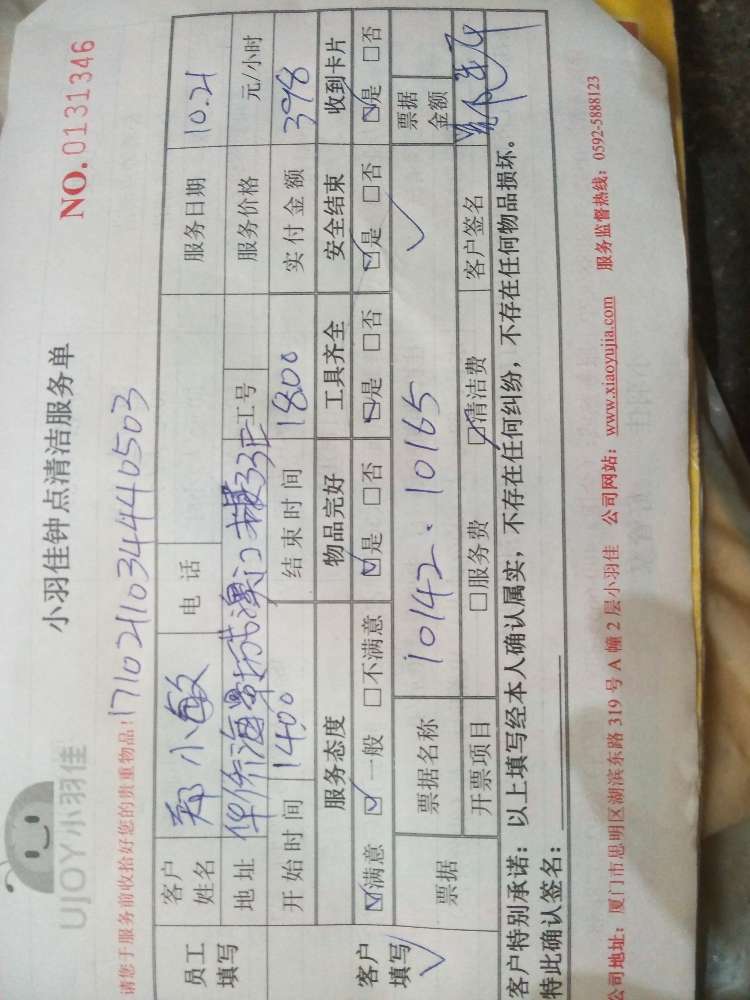 UJOY小羽佳
小羽佳钟点清洁服务单
NO.0131346
请您于服务前收拾好您的贵重物品!
171021103444440503
员工填写
客户姓名 郑小敏 电话 服务日期 10.21
地址 华侨海景城澳门 33F 工号 服务价格 元/小时
开始时间 1400 结束时间 1800 实付金额 398
客户填写
服务态度 物品完好 工具齐全 安全结束 收到卡片
☑满意 ☑一般 □不满意 ☑是 □否 ☑是 □否 ☑是 □否 ☑是 □否
票据 票据名称 10142.10165 票据金额
开票项目 □服务费 ☑清洁费 客户签名
客户特别承诺:以上填写经本人确认属实,不存在任何纠纷,不存在任何物品损坏。
特此确认签名:
公司地址:厦门市思明区湖滨东路 319 号 A 幢 2 层小羽佳 公司网站:www.xiaoyujia.com 服务监督热线:0592-5888123